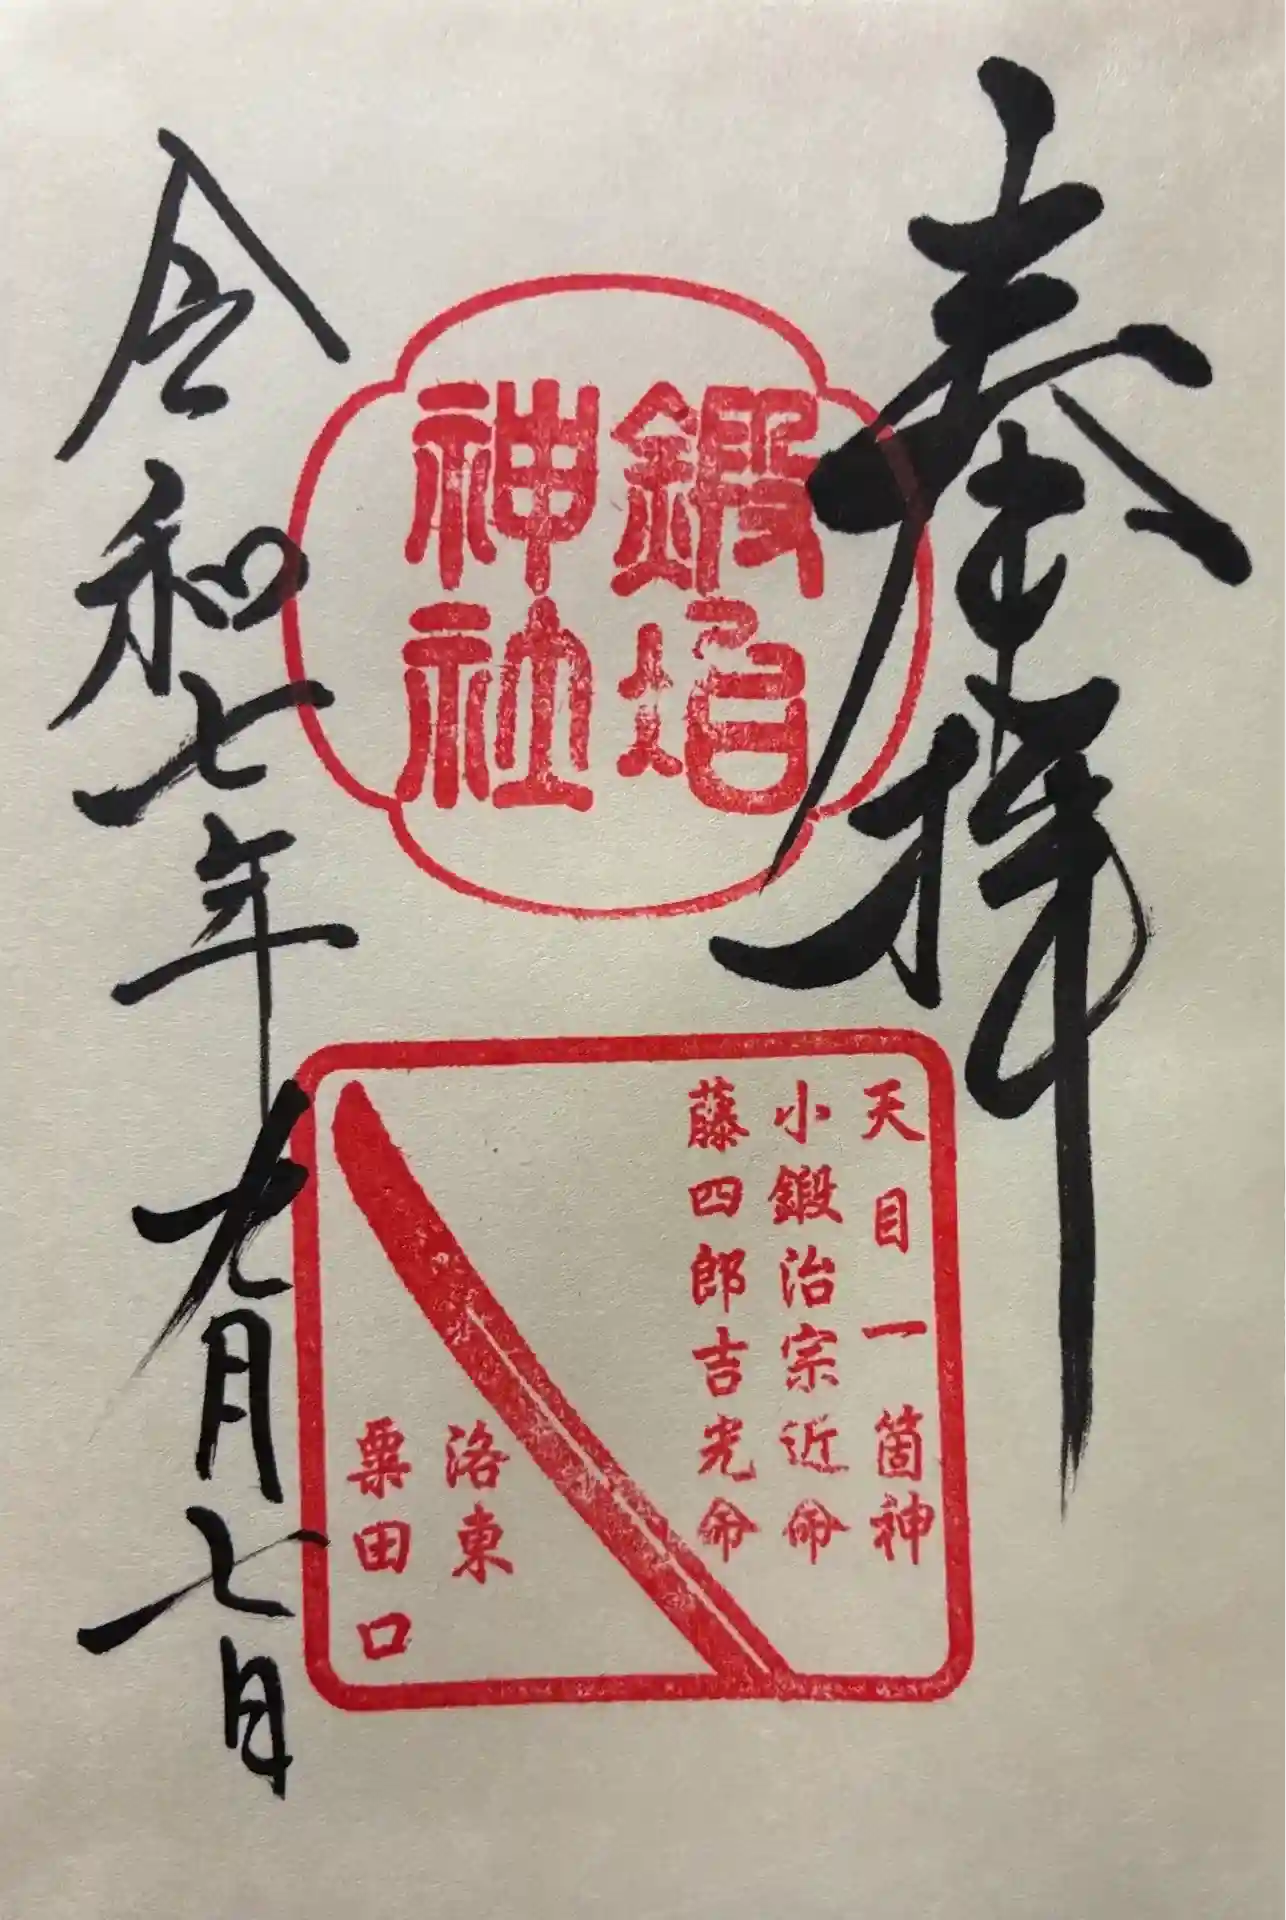 奉拝
鍛冶
神社
天目一箇神
小鍛治宗近命
藤四郎吉光命
洛東
粟田口
令和七年九月七日